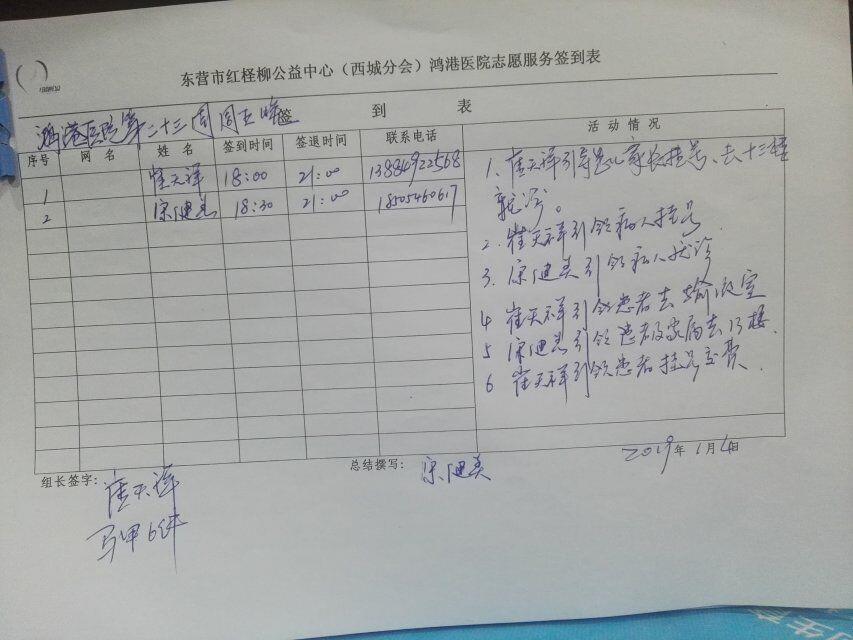 东营市红柽柳公益中心（西城分会）鸿港医院志愿服务签到表
鸿港医院第二十三周周五晚 签 到 表
序号 网 名 姓 名 签到时间 签退时间 联系电话 活 动 情 况
1 崔天祥 18:00 21:00 13884922568
2 宋健美 18:30 21:00 18505460617
1、崔天祥引导患儿家长挂号、去十三楼
就诊。
2、崔天祥引领病人挂号
3、宋健美引领病人就诊
4 崔天祥引领患者去输液室
5 宋健美引领患者及家属去13楼.
6 崔天祥引领患者挂号交费.
2019年1月4日
组长签字：崔天祥
总结撰写：宋健美
马甲6件